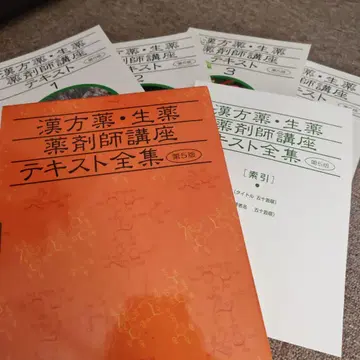 漢方薬・生薬
薬剤師講座
テキスト
1
漢方薬・生薬
薬剤師講座
テキスト
2
漢方薬・生薬
薬剤師講座
テキスト
3
漢方薬・生薬
薬剤師講座
テキスト
漢方薬・生薬
薬剤師講座
テキスト全集 第5版
漢方薬・生薬
薬剤師講座
テキスト全集 第5版
[索引]
(タイトル 五十音順)
五十音順)